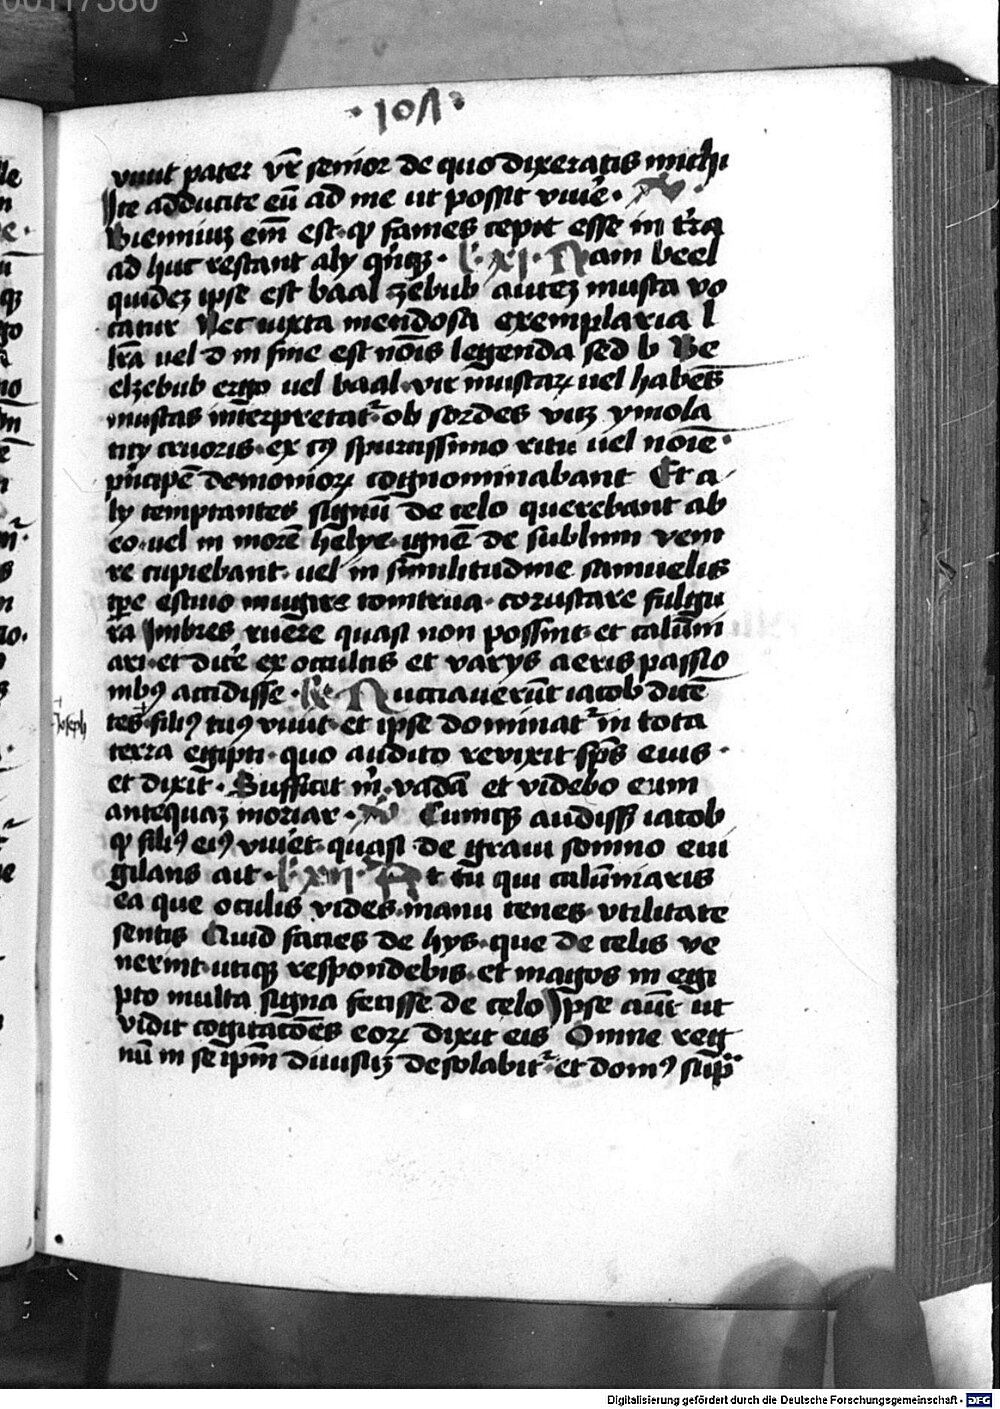 00117380
·101·
viuit pater vr̄ senior de quo dixeratis michi
Ite adducite eū ad me ut possit viūe · R̸
Bienniuʒ em̄ est · qꝫ fames cepit esse in tr̄a
ad huc restant aly qn̄qꝫ · l· xi · Nam beel
quideʒ ipse est baal zebub auteʒ musca vo
catur Nec iuxta mendosa exemplaria l
lr̄a uel d in fine est nōis legenda sed b Be
elzebub ergo uel baal vir muscaꝝ uel habēs
muscas interpretat᷑ ob sordes viꝫ ymola
titij cruoris · ex cꝰ spurcissimo ritu uel noīe ·
pͥncipē demonioꝝ cognominabant Et a
ly temptantes signū de celo querebant ab
eo · uel in morē helye ignē de sublimi veni
re cupiebant · uel in similitudine samuelis
tp̄e estiuo mugire tonitrua · coruscare fulgu
ra Imbres ruēre quasi non possint et calūmi
ari · et dic̄e ex occultis et varijs aeris passio
nibꝰ accidisse · Nuctiauerūt iacob dicē
Joseph
tes · filiꝰ tuꝰ viuit · et ipse dominat᷑ in tota
terra egipti · quo audito reuixit sp̄s eius ·
et dixit · Sufficit m͛ · vadā et videbo eum
antequaʒ moriar · Cumqꝫ audissꝫ iacob
qꝫ filiꝰ eiꝰ viuēt · quasi de graui somno eui
gilans ait · l· xii · At tū qui calūniaris
ea que oculis vides · manu tenes · vtilitate
sentis Quid facies de hys · que de celis ve
nerint · utiqꝫ respondebis · et magos in egi
pto multa signa fecisse de celo Ipse aūt ut
vidit cogitacōes eoꝝ dixit eis Omne reg
nū in seip̄m diuisuʒ desolabit᷑ · et domꝰ sup̄
Digitalisierung gefördert durch die Deutsche Forschungsgemeinschaft - DFG